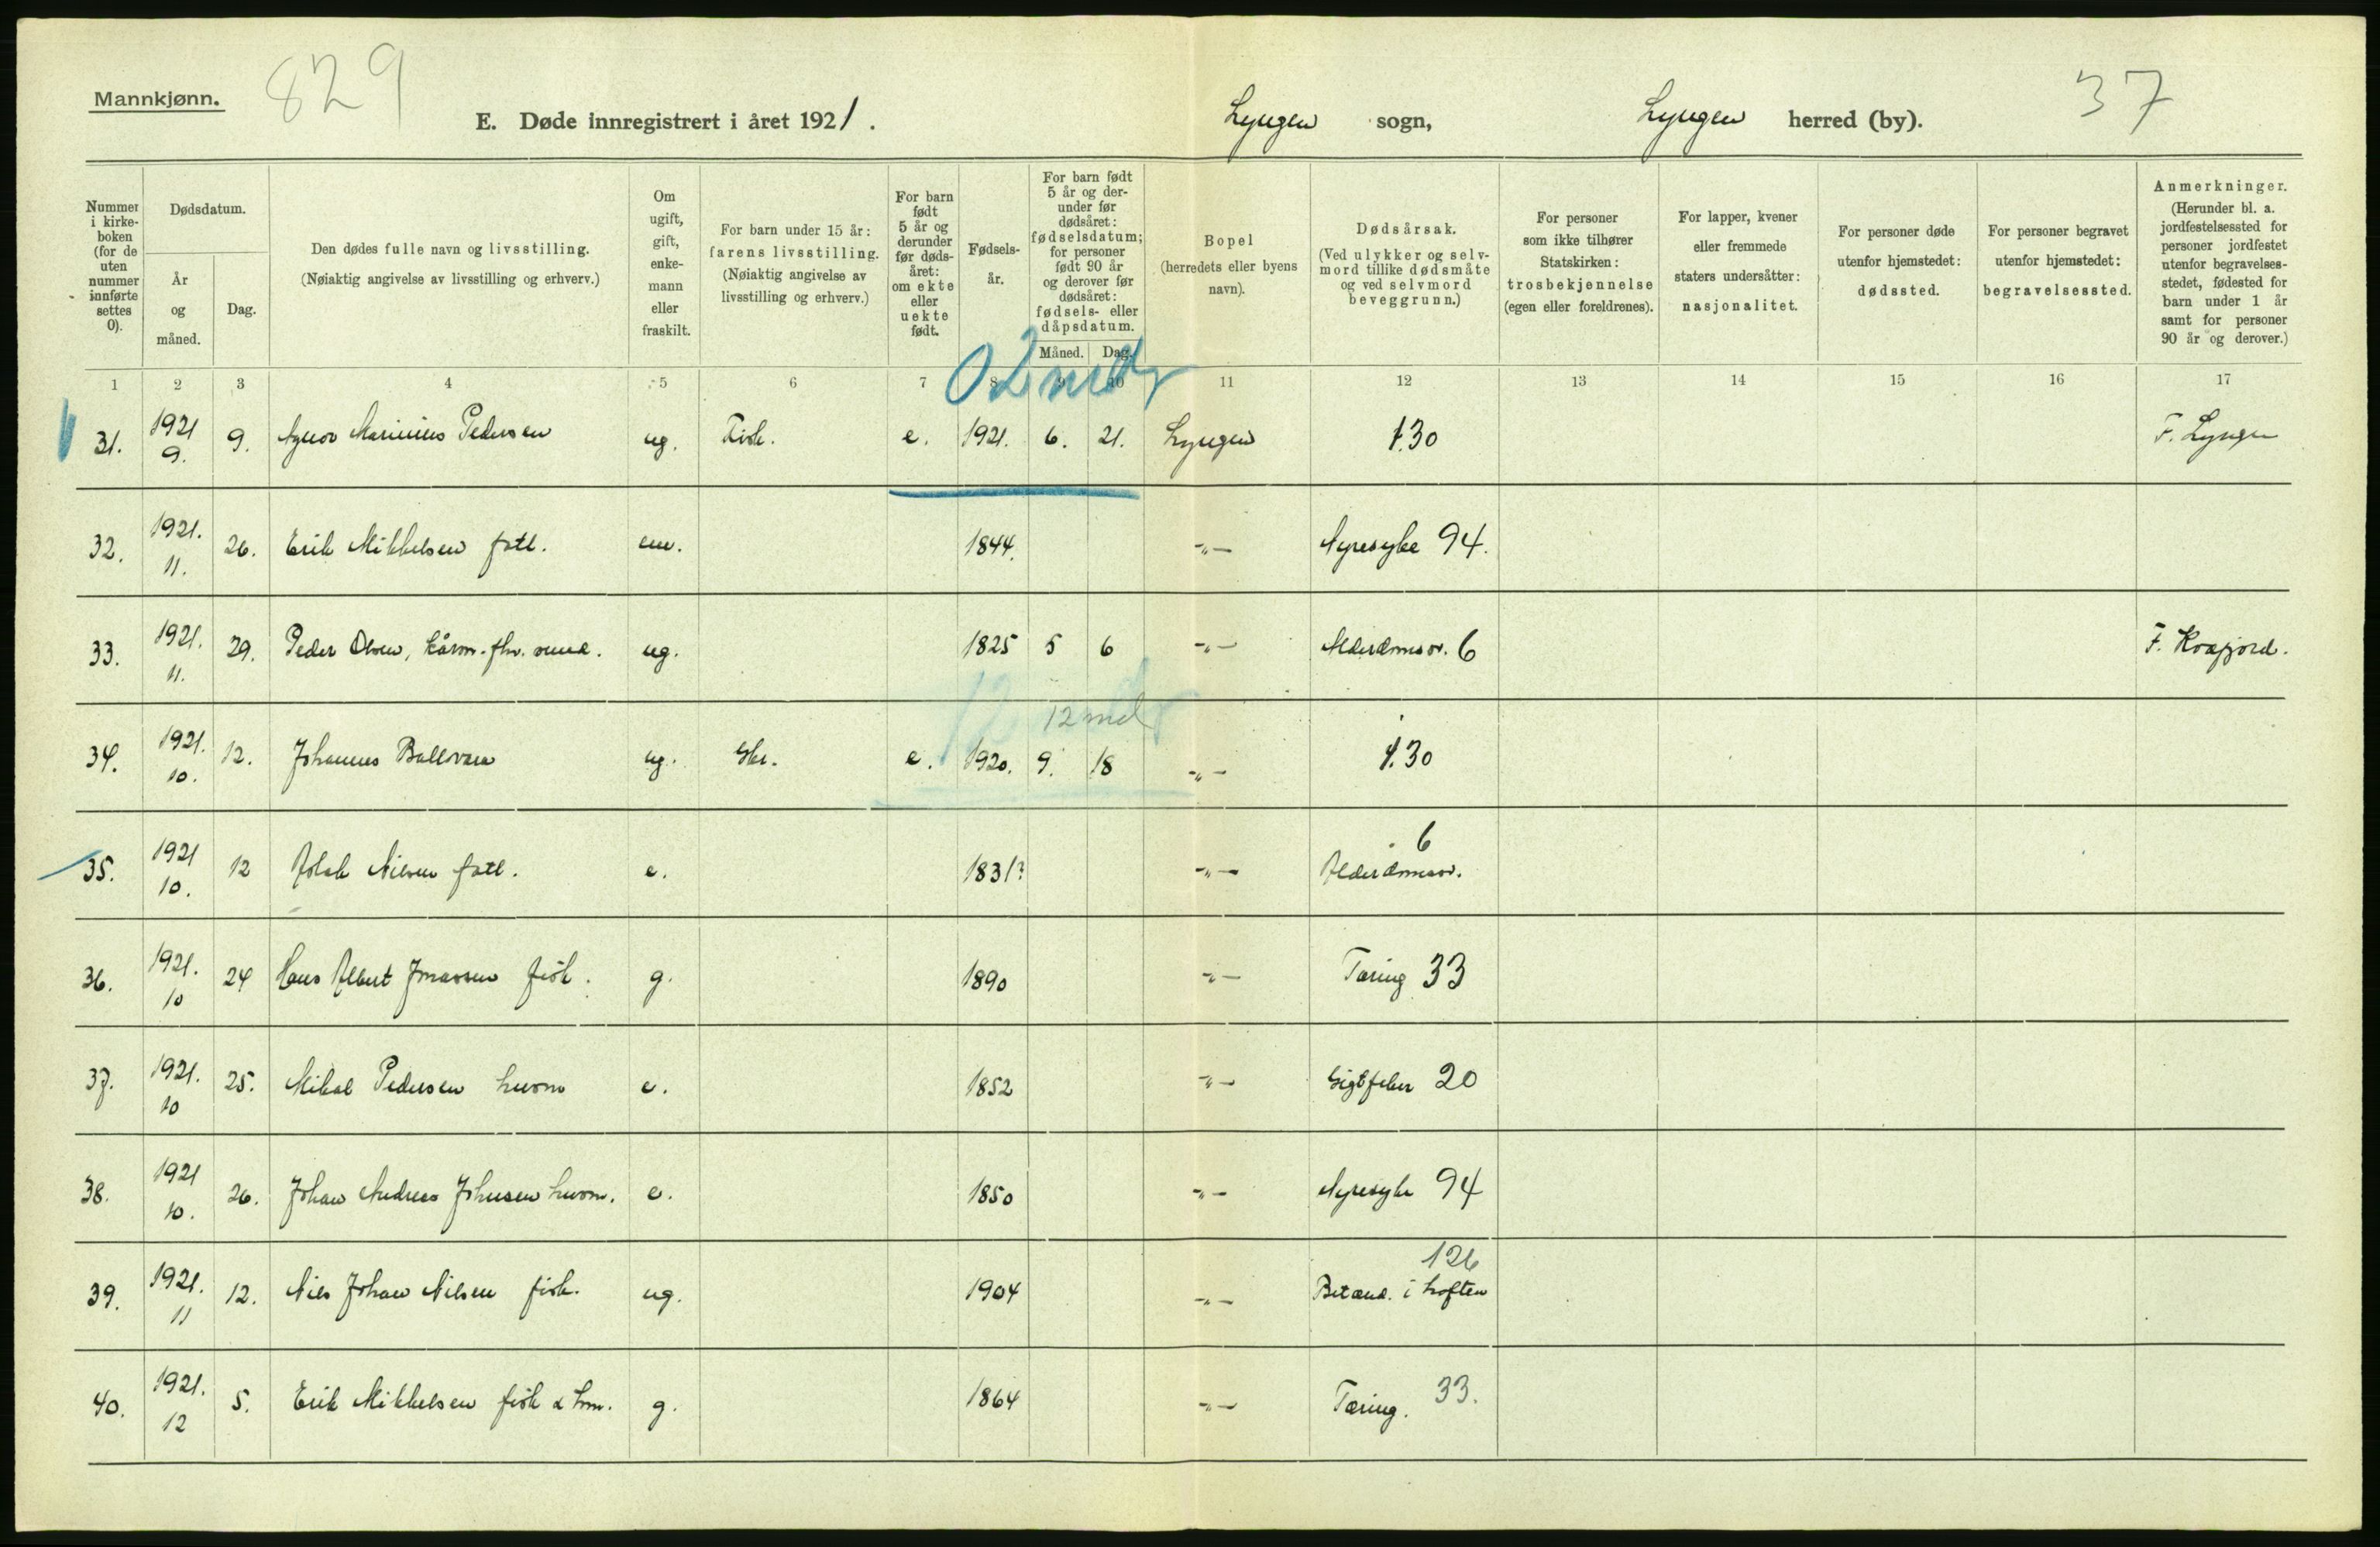 Mannkjønn.
829
E. Døde innregistrert i året 1921. Lyngen sogn, Lyngen herred (by).
37
Nummer i kirke-boken (for de uten nummer innførte settes 0).
Dødsdatum.
År og måned.
Dag.
Den dødes fulle navn og livsstilling.
(Nøiaktig angivelse av livsstilling og erhverv.)
Om ugift, gift, enke-mann eller fraskilt.
For barn under 15 år: farens livsstilling.
(Nøiaktig angivelse av livsstilling og erhverv.)
For barn født 5 år og derunder før døds-året: om ekte eller uekte født.
Fødsels-år.
For barn født 5 år og der-under før dødsåret: fødselsdatum; for personer født 90 år og derover før dødsåret: fødsels- eller dåpsdatum.
Måned. Dag.
Bopel (herredets eller byens navn).
Dødsårsak.
(Ved ulykker og selv-mord tillike dødsmåte og ved selvmord beveggrunn.)
For personer som ikke tilhører Statskirken: trosbekjennelse (egen eller foreldrenes).
For lapper, kvener eller fremmede staters undersåtter: nasjonalitet.
For personer døde utenfor hjemstedet: dødssted.
For personer begravet utenfor hjemstedet: begravelsessted.
Anmerkninger.
(Herunder bl. a. jordfestelsessted for personer jordfestet utenfor begravelses-stedet, fødested for barn under 1 år samt for personer 90 år og derover.)
1 2 3 4 5 6 7 8 9 10 11 12 13 14 15 16 17
31. 1921 9. 9. Marinius Pedersen ug. Fisk. e. 1921. 6. 21. Lyngen 1.30 F. Lyngen
32. 1921. 11. 26. Erik Mikkelsen fatt. em. 1844. -"- Nyresyke 94.
33. 1921. 11. 29. Peder Olsen, kårm. fhv. ug. 1825 5 6 -"- Alderdomssv. 6 F. Kvæfjord.
12 md
34. 1921. 10. 12. Johannes Ballovara ug. e. 1920. 9. 18 -"- 1.30
35. 1921 10. 12 Nilsen fatt. e. 1831? -"- Alderdomssv. 6
36. 1921. 10 24 Hans Albert fisk. g. 1890 -"- Tæring 33
37. 1921. 10 25. Mikal Pedersen husm e. 1852 -"- Gigtfeber 20
38. 1921 10. 26. Johan Andreas Johnsen husm. e. 1850 -"- Nyresyke 94
39. 1921. 11 12. Nils Johan Nilsen fisk. ug. 1904 -"- Betænd. i hoften 126
40. 1921. 12 5. Erik Mikkelsen fisk & hm. g. 1864 -"- Tæring. 33.